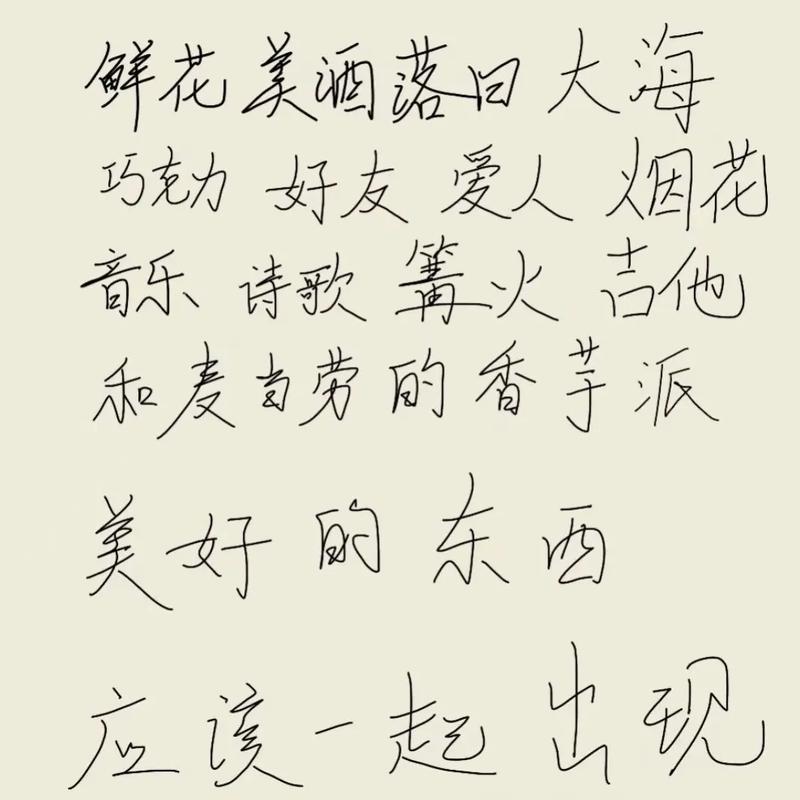 鲜花美酒落日大海
巧克力 好友 爱人 烟花
音乐 诗歌 篝火 吉他
和麦当劳的香芋派
美好的东西
应该一起出现